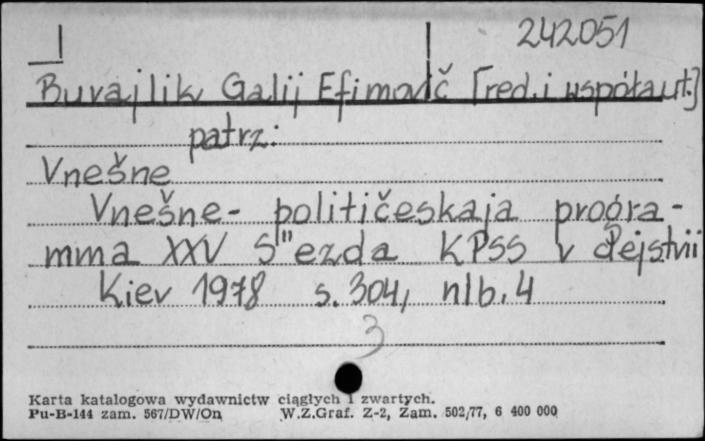 242051
Buvajlik Galij Efimovič [red. i współaut.]
patrz:
Vnešne
Vnešne- političeskaja progra-
mma XXV S"ezda KPSS v dejstvii
Kiev 1978 s. 304, nlb. 4
3
Karta katalogowa wydawnictw ciągłych i zwartych.
Pu-B-144 zam. 567/DW/On W.Z.Graf. Z-2, Zam. 502/77, 6 400 000